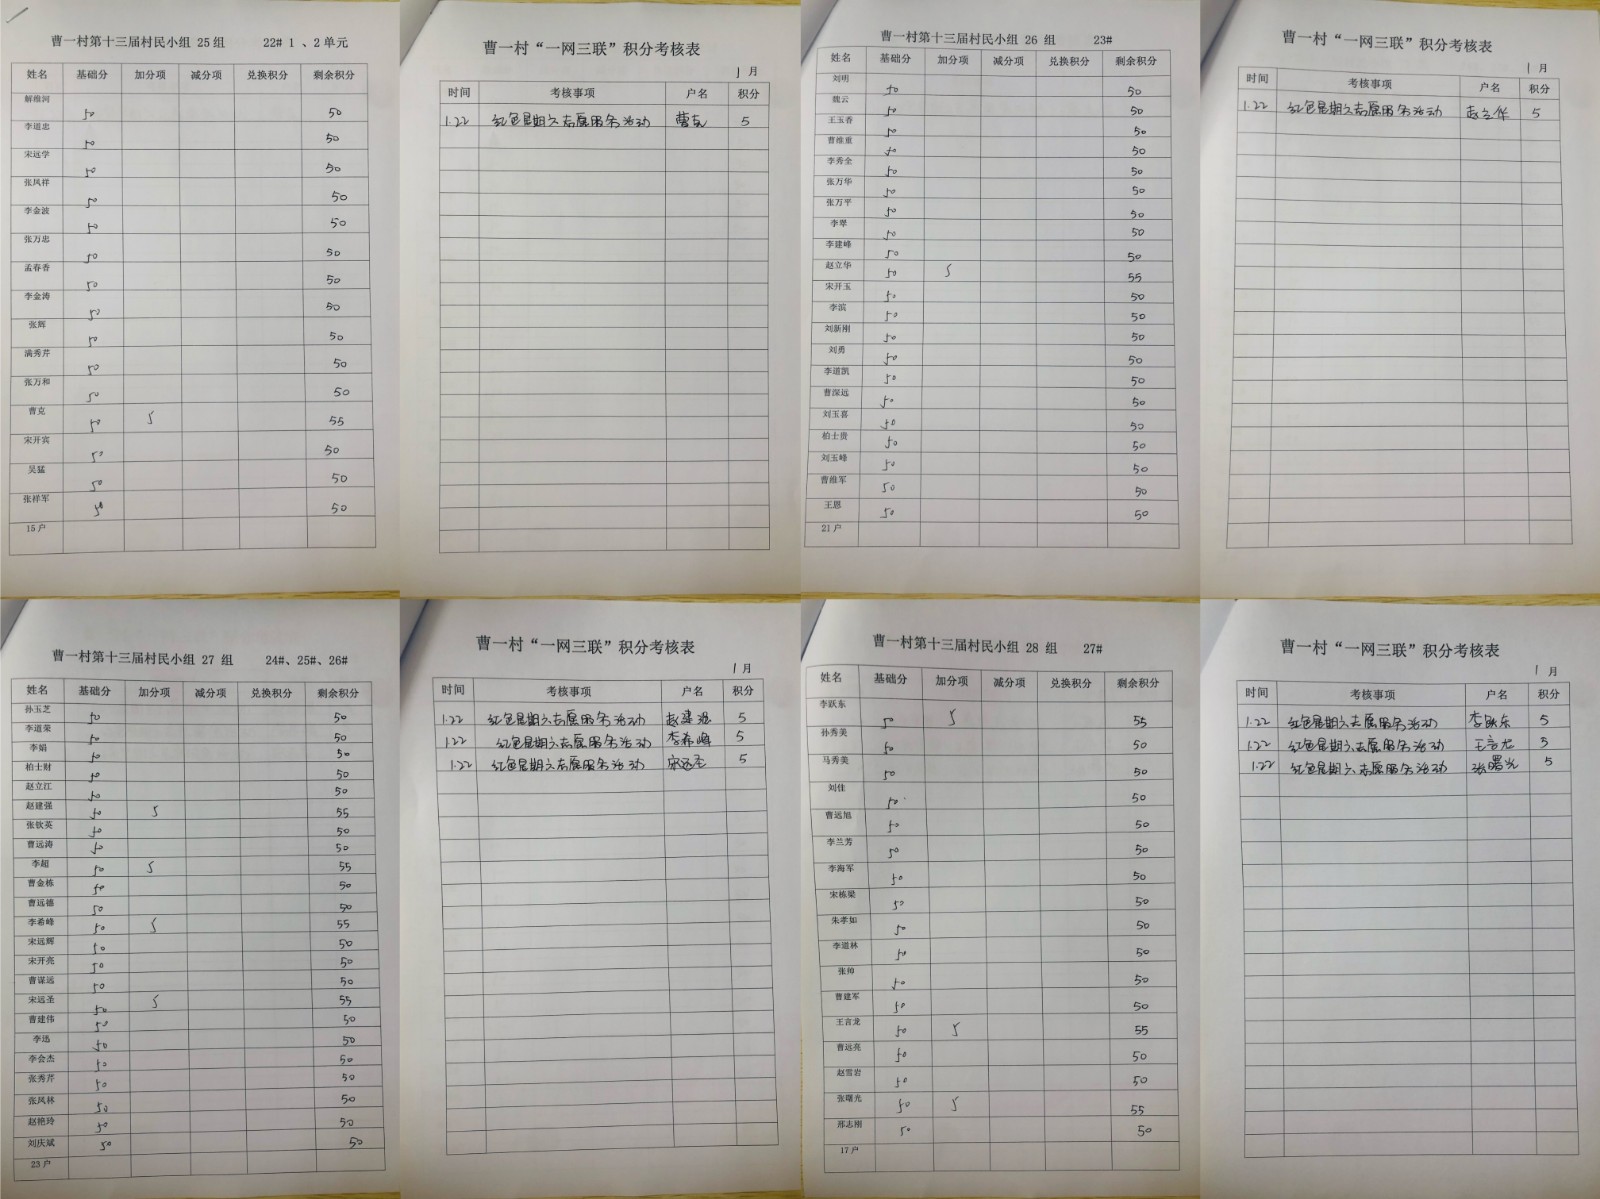 曹一村第十三届村民小组 25 组 22# 1 、2 单元
姓名 基础分 加分项 减分项 兑换积分 剩余积分
解维河 50 50
李道忠 50 50
宋远学 50 50
张凤祥 50 50
李金波 50 50
张万忠 50 50
孟春香 50 50
李金涛 50 50
张辉 50 50
满秀芹 50 50
张万和 50 50
曹克 50 5 55
宋开宾 50 50
吴猛 50 50
张祥军 50 50
15 户
曹一村“一网三联”积分考核表
1 月
时间 考核事项 户名 积分
1.22 红色星期六志愿服务活动 曹克 5
曹一村第十三届村民小组 26 组 23#
姓名 基础分 加分项 减分项 兑换积分 剩余积分
刘明 50 50
魏云 50 50
王玉香 50 50
曹维重 50 50
李秀全 50 50
张万华 50 50
张万平 50 50
李翠 50 50
李建峰 50 50
赵立华 50 5 55
宋开玉 50 50
李滨 50 50
刘新刚 50 50
刘勇 50 50
李道凯 50 50
曹深远 50 50
刘玉喜 50 50
柏士贵 50 50
刘玉峰 50 50
曹维军 50 50
王恩 50 50
21 户
曹一村“一网三联”积分考核表
1 月
时间 考核事项 户名 积分
1.22 红色星期六志愿服务活动 赵立华 5
曹一村第十三届村民小组 27 组 24#、25#、26#
姓名 基础分 加分项 减分项 兑换积分 剩余积分
孙玉芝 50 50
李道荣 50 50
李娟 50 50
柏士财 50 50
赵立江 50 50
赵建强 50 5 55
张钦英 50 50
曹远涛 50 50
李超 50 5 55
曹金栋 50 50
曹远德 50 50
李希峰 50 5 55
宋远辉 50 50
宋开亮 50 50
曹谋远 50 50
宋远圣 50 5 55
曹建伟 50 50
李迅 50 50
李会杰 50 50
张秀芹 50 50
张凤林 50 50
赵艳玲 50 50
刘庆斌 50 50
23 户
曹一村“一网三联”积分考核表
1 月
时间 考核事项 户名 积分
1.22 红色星期六志愿服务活动 赵建强 5
1.22 红色星期六志愿服务活动 李希峰 5
1.22 红色星期六志愿服务活动 宋远圣 5
曹一村第十三届村民小组 28 组 27#
姓名 基础分 加分项 减分项 兑换积分 剩余积分
李跃东 50 5 55
孙秀美 50 50
马秀美 50 50
刘佳 50 50
曹远旭 50 50
李兰芳 50 50
李海军 50 50
宋栋梁 50 50
朱孝如 50 50
李道林 50 50
张帅 50 50
曹建军 50 50
王言龙 50 5 55
曹远亮 50 50
赵雪岩 50 50
张曙光 50 5 55
邢志刚 50 50
17 户
曹一村“一网三联”积分考核表
1 月
时间 考核事项 户名 积分
1.22 红色星期六志愿服务活动 李跃东 5
1.22 红色星期六志愿服务活动 王言龙 5
1.22 红色星期六志愿服务活动 张曙光 5